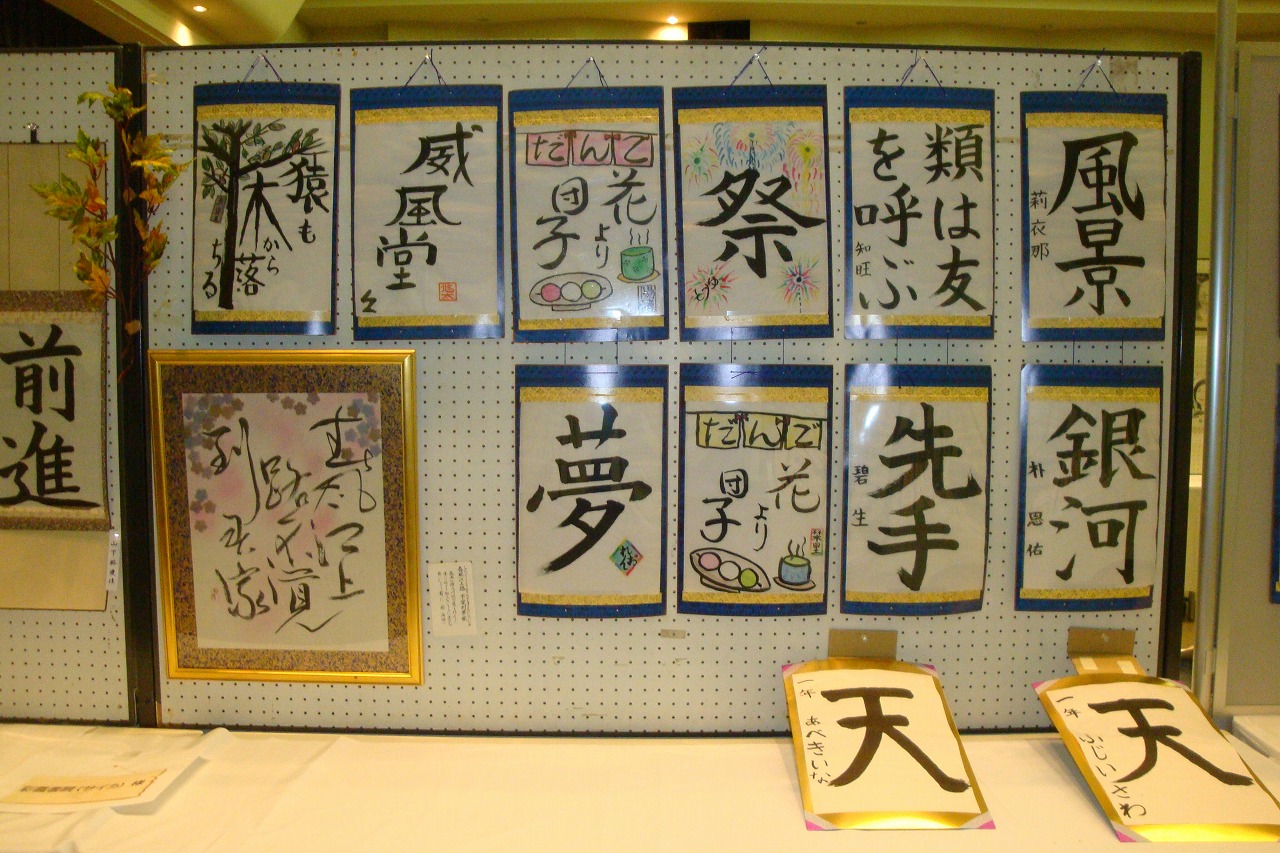 猿も
木から
落
ちる
威
風
堂
々
だんご
花より
団子
祭
類は友
を呼ぶ
知旺
風景
莉衣那
前進
春風江上
路不覚
到君家
夢
だんご
花より
団子
先手
碧生
銀河
朴恩佑
天
一年
あべきいな
天
一年
ふじいさわ